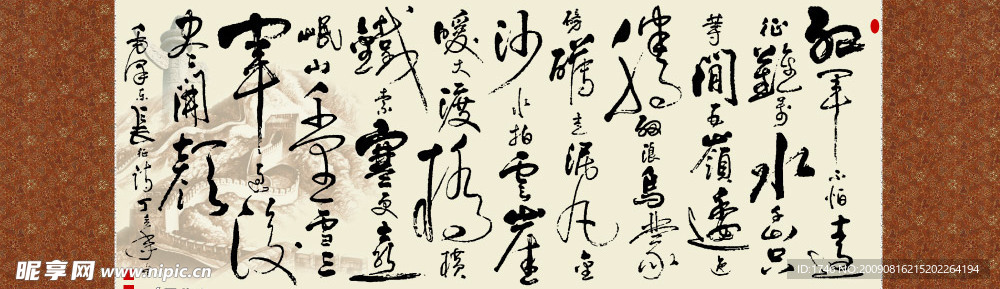 红军不怕远
征難萬水千山只
等閒五嶺逶迤
腾細浪烏蒙
磅礴走泥丸金
沙水拍雲崖
暖大渡橋横
鐵索寒更喜
岷山千里雪三
軍過後
尽開顏
毛澤东長征诗丁亥年
昵享网 www.nipic.cn
ID:1746 NO:20090816215202264194